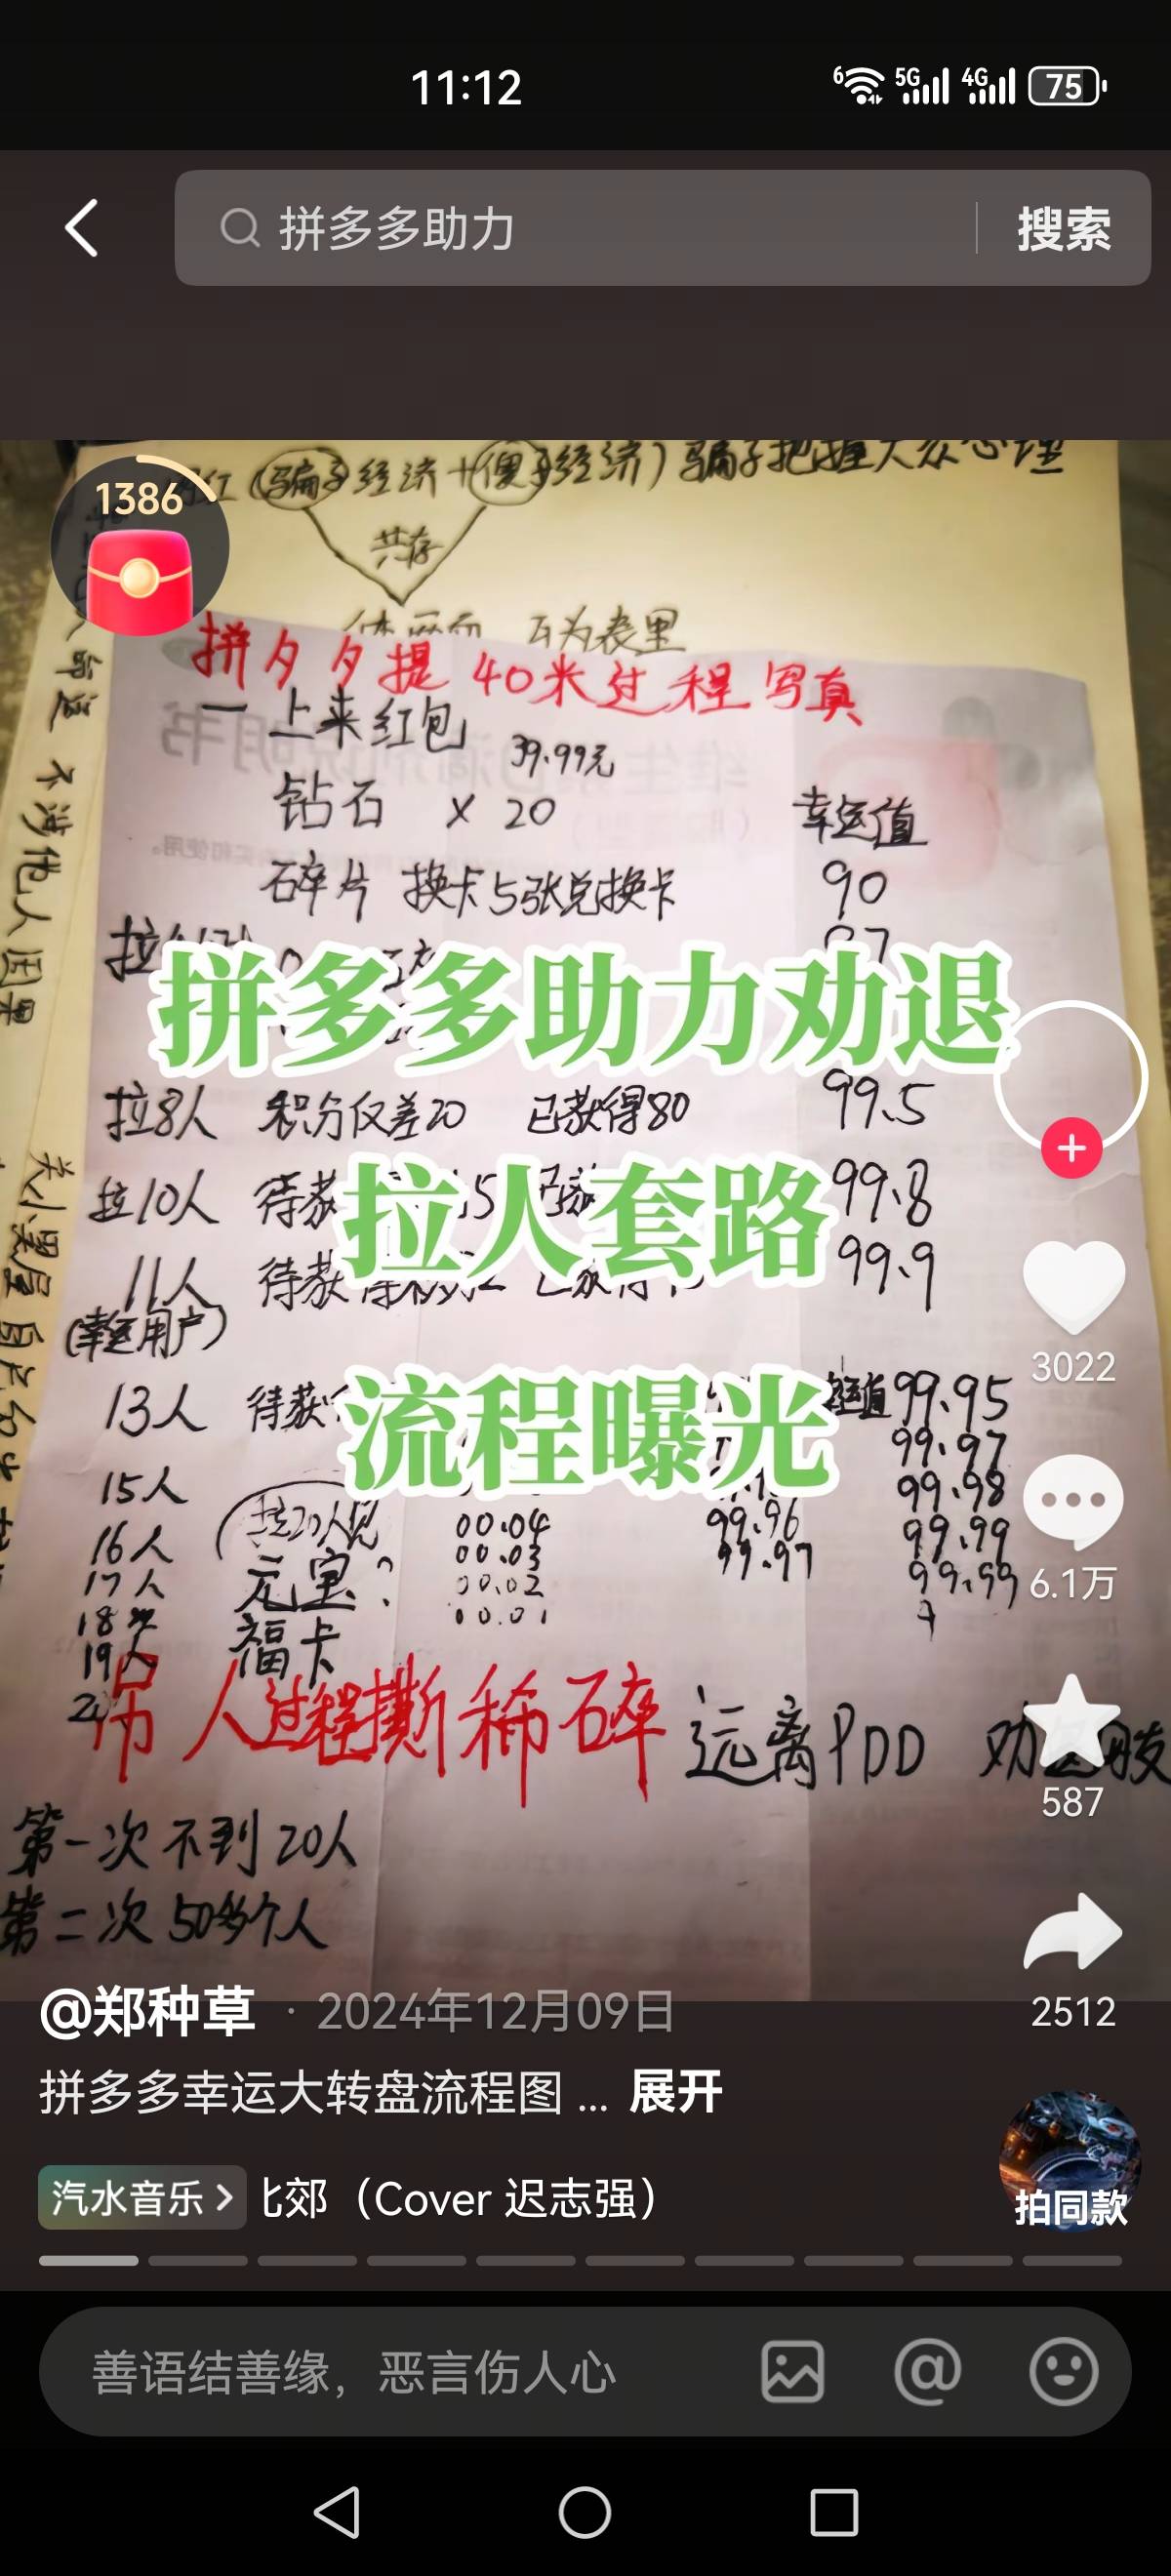 11:12
6 5G 4G 75
拼多多助力 搜索
红(骗子经济+傻子经济)骗子把握大众心理
1386
共存
互为表里
拼夕夕提40米过程写真
一上来红包 39.99元
钻石 × 20 幸运值
碎片 换卡 5张兑换卡 90
拼多多助力劝退
拉8人 积分仅差20 已获得80 99.5
拉人套路
拉10人 待获 5 99.8
11人 待获 99.9
(幸运用户)
流程曝光
13人 待获 幸运值 99.95
99.97
15人 99.98
16人 00.04 99.96 99.99
17人 元宝? 00.03 99.97 99.99
00.02
18 福卡 00.01
19人
吊人过程撕稀碎 远离PDD
第一次不到20人
第二次50多个人
不涉他人因果
3022
6.1万
587
2512
@郑种草 · 2024年12月09日
拼多多幸运大转盘流程图 ... 展开
汽水音乐 > 北郊（Cover 迟志强）
拍同款
善语结善缘，恶言伤人心 @